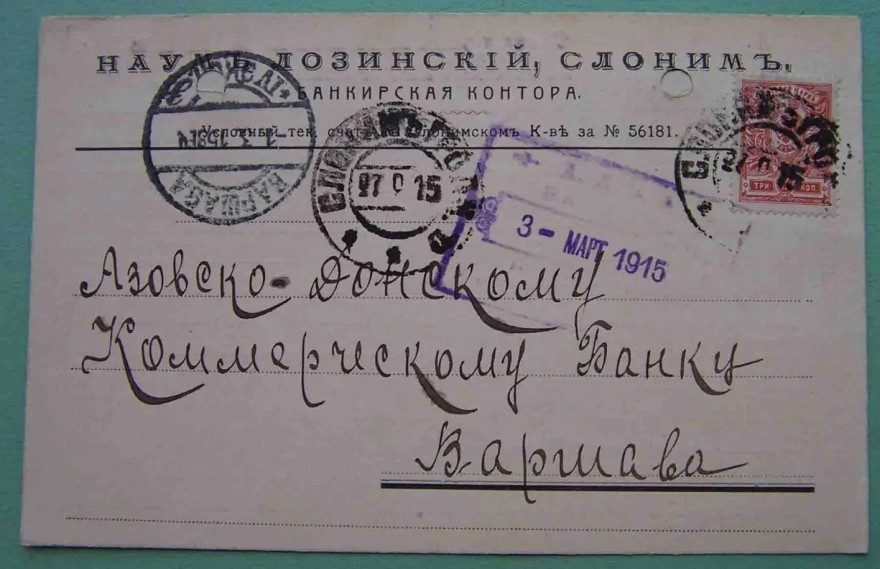 НАУМЪ ЛОЗИНСКІЙ, СЛОНИМЪ.
БАНКИРСКАЯ КОНТОРА.
Условный тек. счетъ въ Слонимскомъ К-вѣ за № 56181.
ВАРШАВА
СЛОНИМЪ
27 15
СЛОНИМЪ
15
ТРИ КОП.
3 - МАРТ 1915
Азовско-Донскому
Коммерческому Банку
Варшава